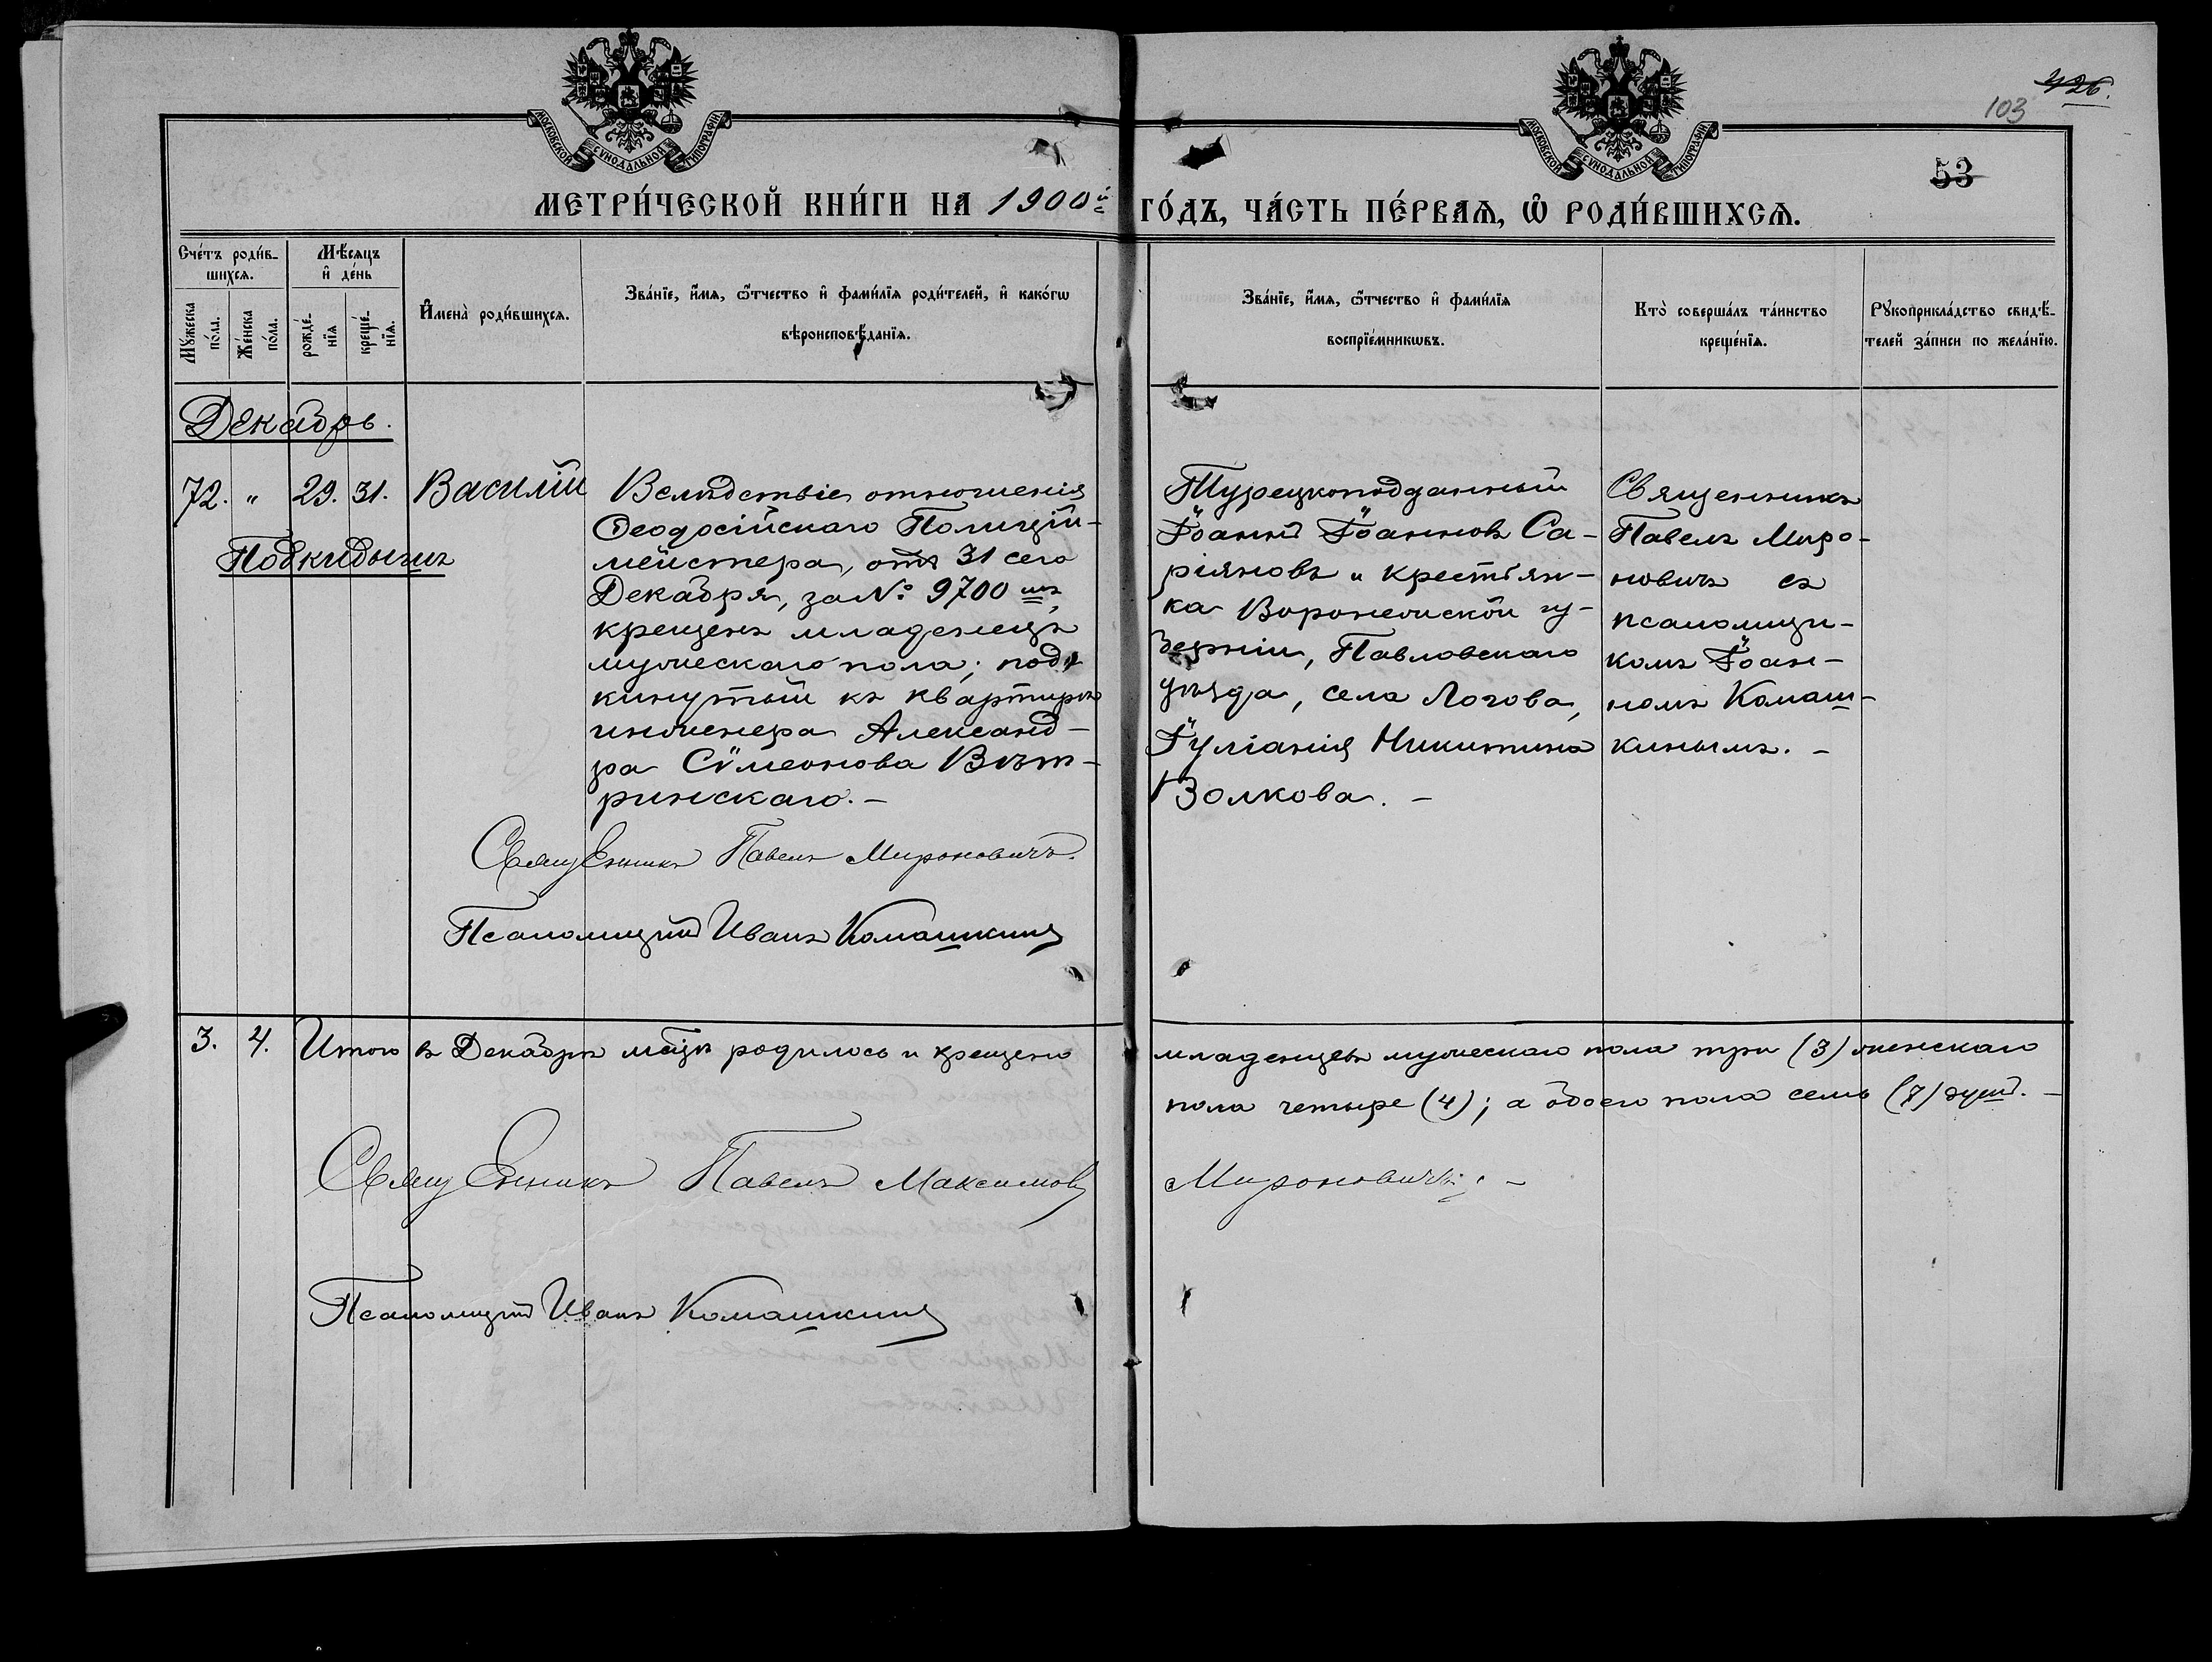 426.
103
53
МОСКОВСКОЙ СѴНОДАЛЬНОЙ ТИПОГРАФІИ
МОСКОВСКОЙ СѴНОДАЛЬНОЙ ТИПОГРАФІИ
МЕТРИ́ЧЕСКОЙ КНИ́ГИ НА 1900й ГО́ДЪ, ЧА́СТЬ ПЕ́РВАѦ, Ѡ҆ РОДИ́ВШИХСѦ.
Сче́тъ роди́в-
шихсѧ.
Мꙋ́жеска по́ла.
Же́нска по́ла.
Мѣ́сѧцъ
и҆ де́нь
рожде́-
нїѧ
креще́-
нїѧ.
И҆мена̀ роди́вшихсѧ.
Зва́нїе, и҆́мѧ, ѻ҆́тчество и҆ фами́лїѧ роди́телей, и҆ како́гѡ
вѣроисповѣ́данїѧ.
Зва́нїе, и҆́мѧ, ѻ҆́тчество и҆ фами́лїѧ
воспрїе́мникѡвъ.
Кто̀ соверша́лъ та́инство
креще́нїѧ.
Рꙋкоприкла́дство свидѣ́-
телей за́писи по жела́нїю.
Декабрь.
72. " 29. 31. Василій
Подкидышъ
Вслѣдствіе отношенія
Ѳеодосійскаго Полицій-
мейстера, отъ 31 сего
Декабря, за № 9700мъ,
крещенъ младенецъ
мужескаго пола; под-
кинутый къ квартирѣ
инженера Александ-
ра Сѵмеонова Вѣт-
ринскаго. –
Турецкоподданный
Іоаннъ Іоанновъ Са-
ріяновъ и крестьян-
ка Воронежской гу-
берніи, Павловскаго
уѣзда, села Логова,
Іуліанія Никитина
Волкова. –
Священникъ
Павелъ Миро-
новичъ съ
псаломщи-
комъ Іоан-
номъ Комаш-
кинымъ. –
Священникъ Павелъ Мироновичъ.
Псаломщикъ Иванъ Комашкинъ
3. 4. Итого въ Декабрѣ мѣцѣ родилось и крещено младенцевъ мужескаго пола три (3) женскаго
пола четыре (4); а обоего пола семь (7) душъ. –
Священникъ Павелъ Максимовъ Мироновичъ. –
Псаломщикъ Иванъ Комашкинъ